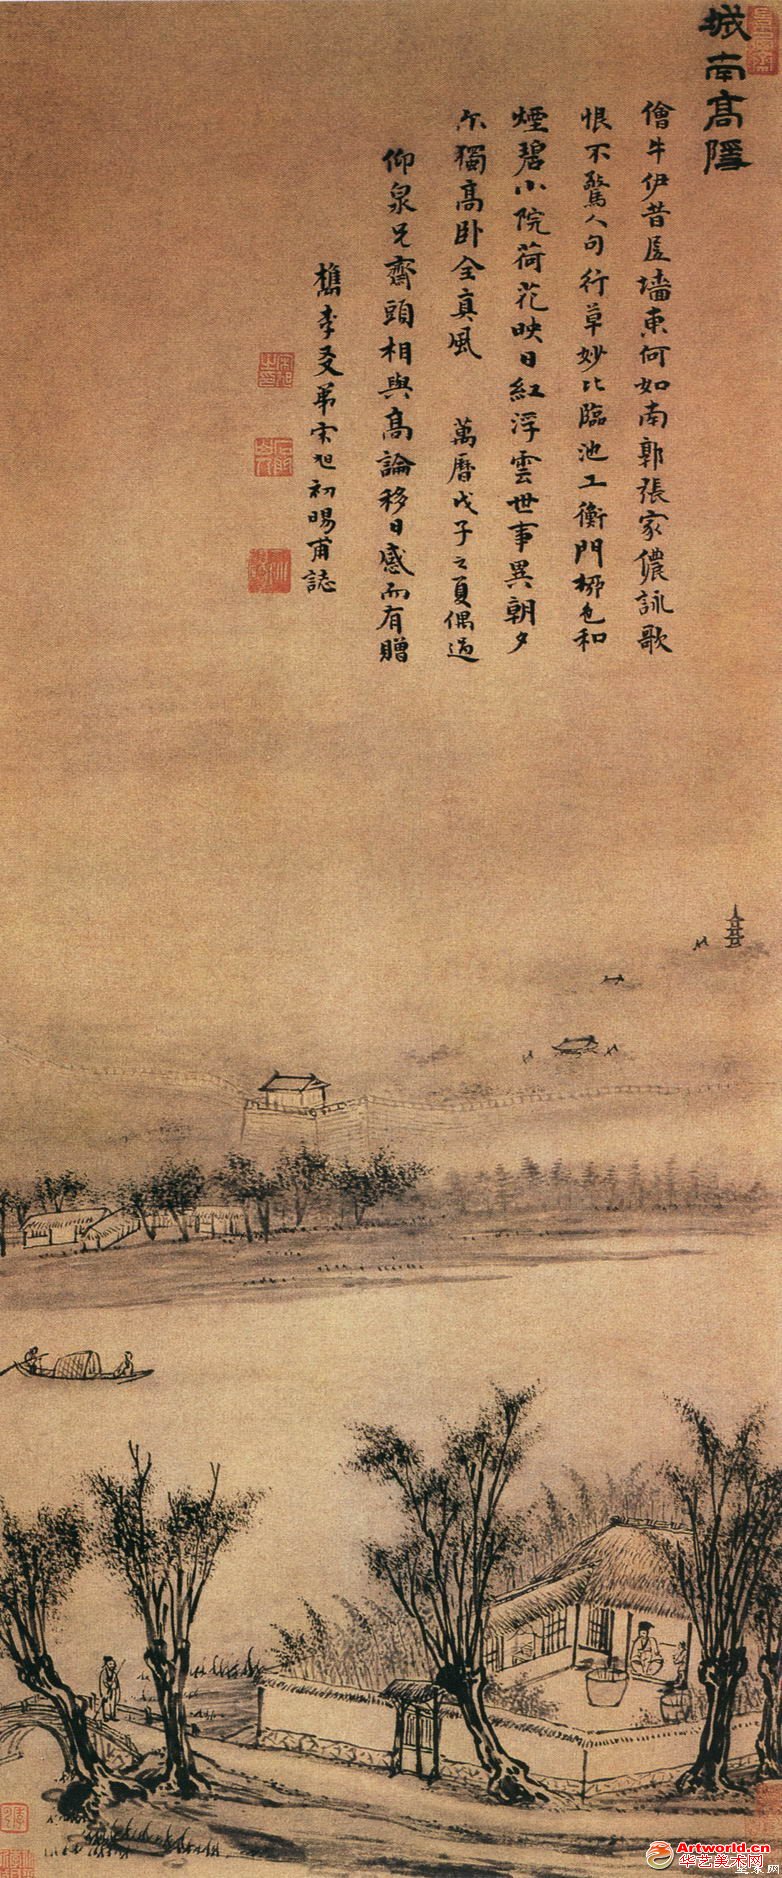 城南高隱
儈牛伊昔居墻東何如南郭張家儂詠歌
恨不驚人句行草妙比臨池工衡門柳色和
煙碧小院荷花映日紅浮雲世事異朝夕
尔獨高卧全真風 萬曆戊子之夏偶過
仰泉兄齋頭相與高論移日感而有贈
檇李友弟宋旭初暘甫誌
Artworld.cn
华艺美术网